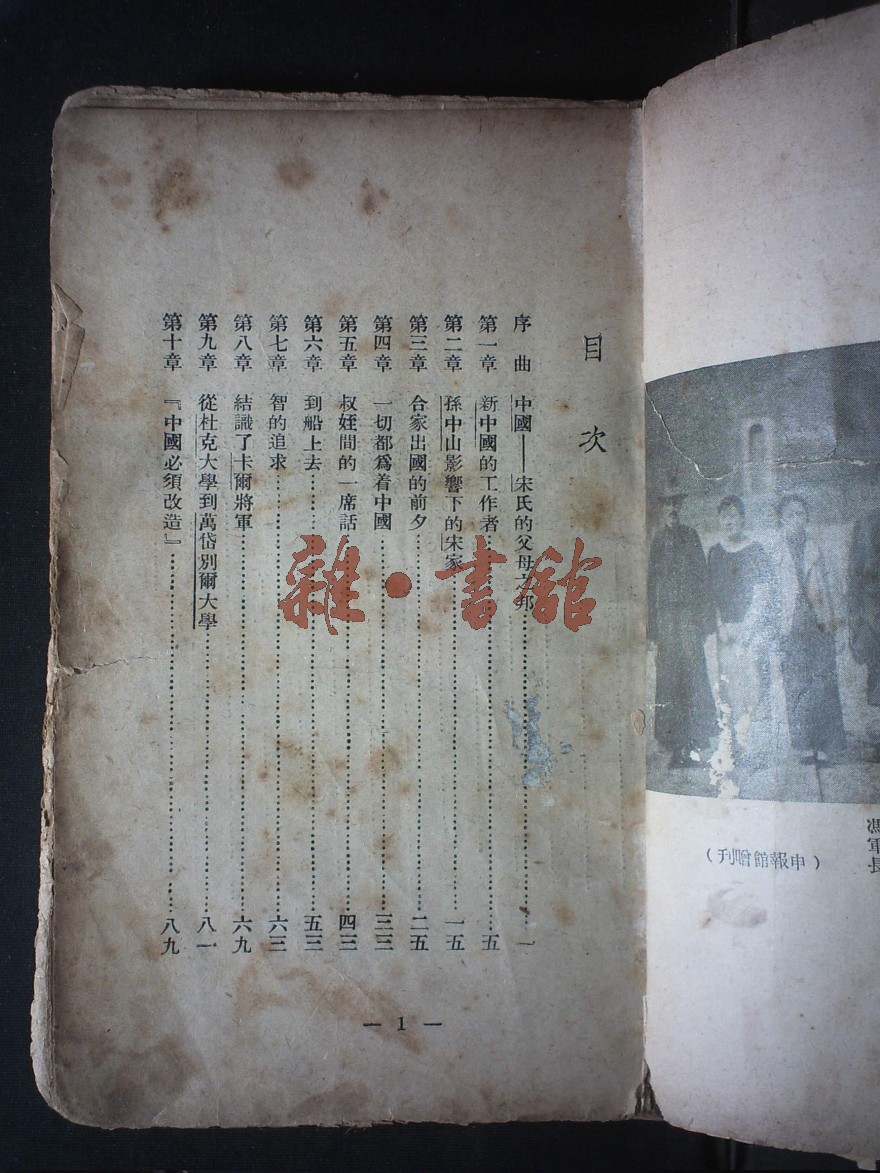 馮軍長
（申報館贈刊）
目次
序曲　中國——宋氏的父母之邦……一
第一章　新中國的工作者……五
第二章　孫中山影響下的宋家……一五
第三章　合家出國的前夕……二五
第四章　一切都爲着中國……三三
第五章　叔姪間的一席話……四三
第六章　到船上去……五三
第七章　智的追求……六三
第八章　結識了卡爾將軍……六九
第九章　從杜克大學到萬岱別爾大學……八一
第十章　『中國必須改造』……八九
— 1 —
雜·書館